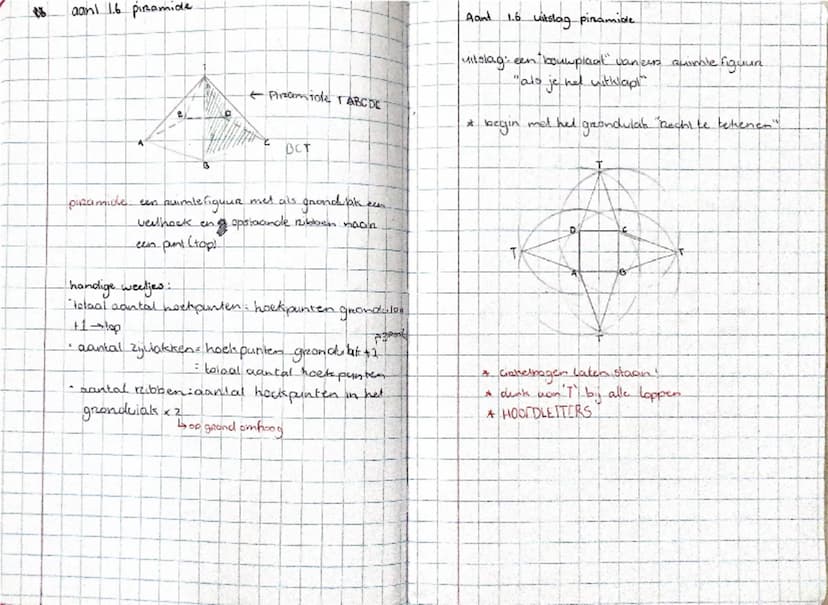 aant 1.6 piramide
T
← Piramide T ABCDE
E
D
A
C
B
DCT
piramide: een ruimtefiguur met als grondvlak een
veelhoek en opstaande ribben naar
een punt (top)
handige weetjes:
· totaal aantal hoekpunten = hoekpunten grondvlak
+1 → top
· aantal zijvlakken = hoekpunten grondvlak +1
= totaal aantal hoekpunten
· aantal ribben = aantal hoekpunten in het
grondvlak x 2
↳ op grond omhoog
Aant 1.6 uitslag piramide
uitslag: een "bouwplaat" van een ruimtefiguur
"als je het uitklapt"
* begin met het grondvlak "Recht te tekenen"
T
D
C
T
T
A
B
T
* Cirkelbogen laten staan!
* denk aan 'T' bij alle toppen
* HOOFDLETTERS